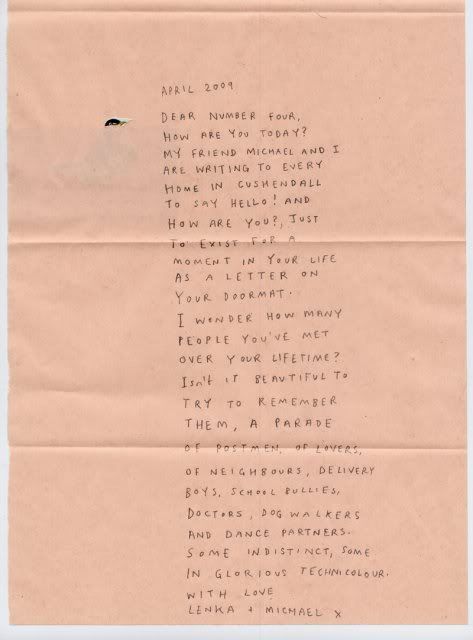 APRIL 2009
DEAR NUMBER FOUR,
HOW ARE YOU TODAY?
MY FRIEND MICHAEL AND I
ARE WRITING TO EVERY
HOME IN CUSHENDALL
TO SAY HELLO! AND
HOW ARE YOU?, JUST
TO EXIST FOR A
MOMENT IN YOUR LIFE
AS A LETTER ON
YOUR DOORMAT.
I WONDER HOW MANY
PEOPLE YOU'VE MET
OVER YOUR LIFETIME?
Isn't IT BEAUTIFUL TO
TRY TO REMEMBER
THEM, A PARADE
OF POSTMEN, OF LOVERS,
OF NEIGHBOURS, DELIVERY
BOYS, SCHOOL BULLIES,
DOCTORS, DOG WALKERS
AND DANCE PARTNERS.
SOME INDISTINCT, SOME
IN GLORIOUS TECHNICOLOUR.
WITH LOVE
LENKA + MICHAEL X